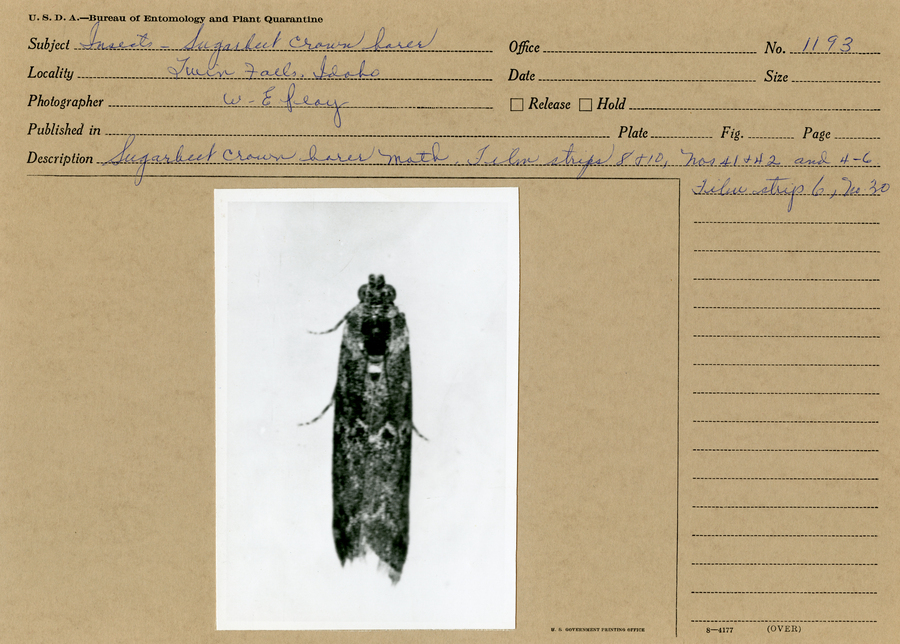 U. S. D. A.—Bureau of Entomology and Plant Quarantine
Subject Insects - Sugarbeet crown borer Office No. 1193
Locality Twin Falls, Idaho Date Size
Photographer W. E. Peay Release Hold
Published in Plate Fig. Page
Description Sugarbeet crown borer moth. Film strips 8+10, Nos 41+42 and 4-6
Film strip 6, No. 30
U. S. GOVERNMENT PRINTING OFFICE 8—4177 (OVER)